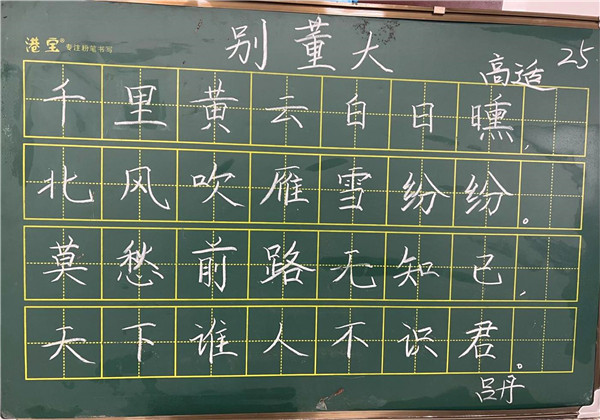 港宝® 专注粉笔书写
别董大
高适
25
千里黄云白日曛,
北风吹雁雪纷纷。
莫愁前路无知己,
天下谁人不识君。
吕丹